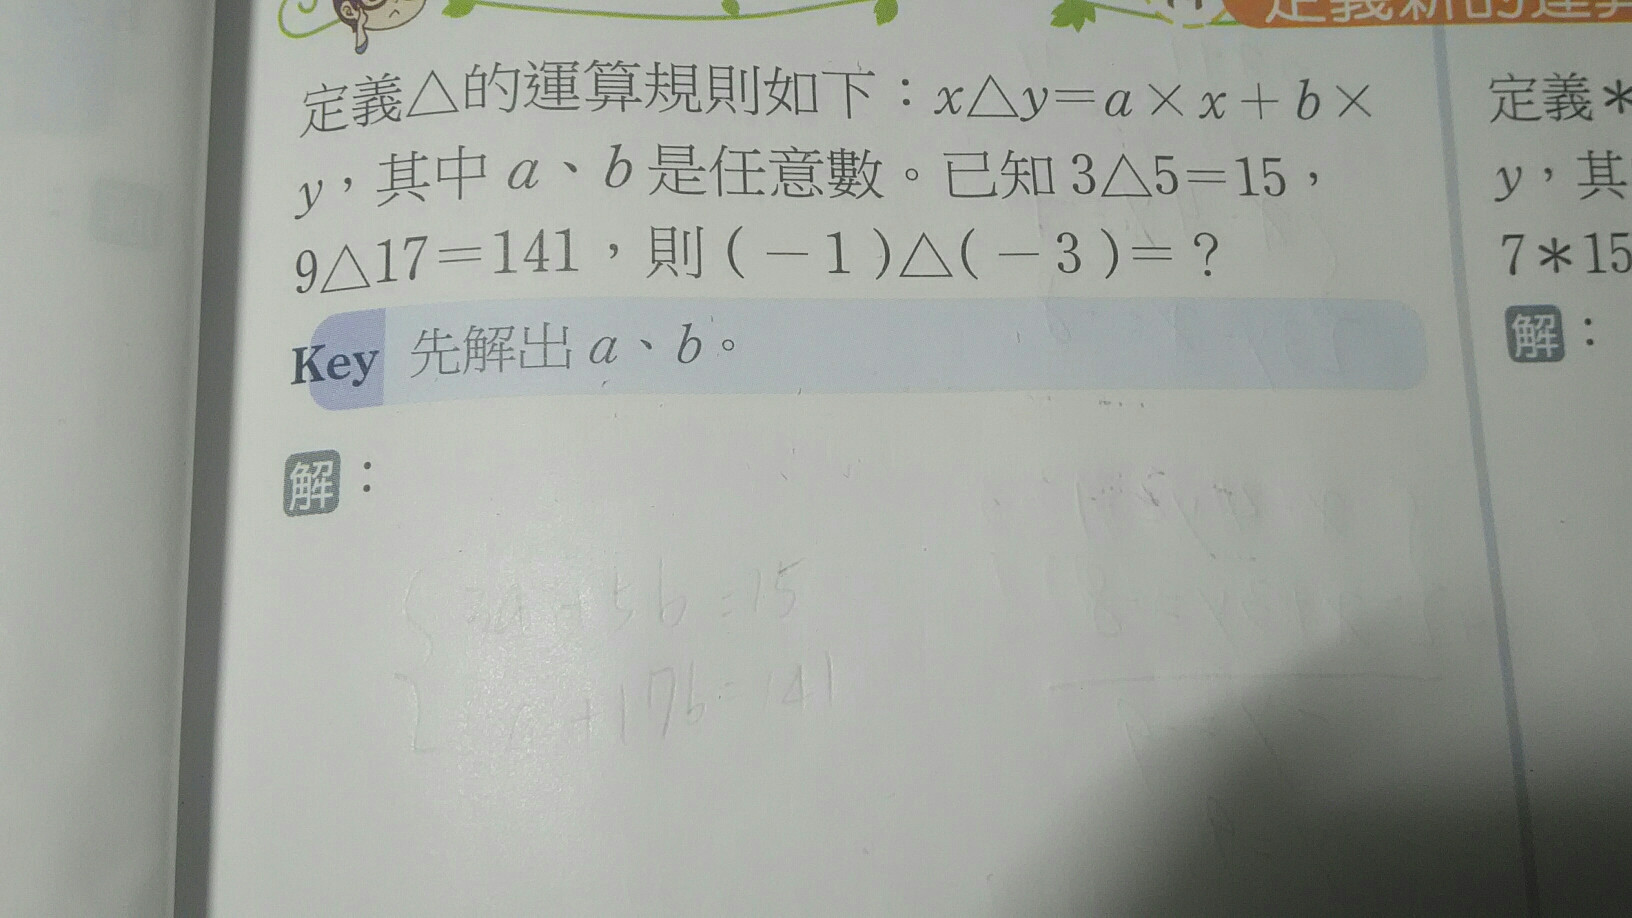 定義新的運算
定義△的運算規則如下：x△y＝a×x＋b×
y，其中 a、b 是任意數。已知 3△5＝15，
9△17＝141，則(－1)△(－3)＝？
Key 先解出 a、b。
解：
3a+5b=15
+17b=141
定義＊
y，其
7＊15
解：